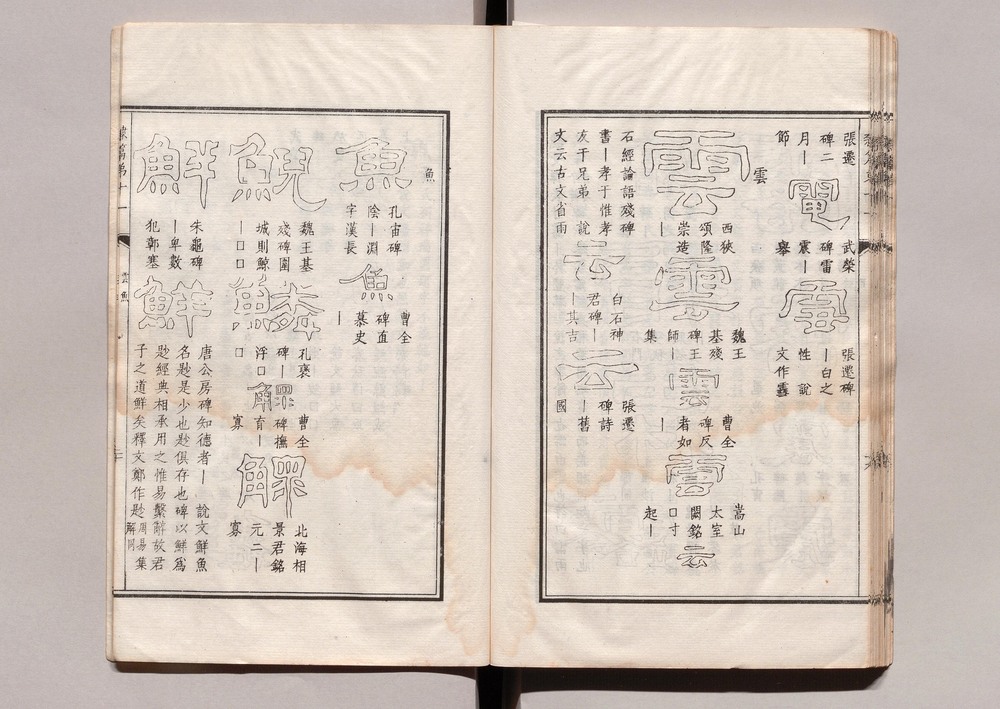 張遷
碑二
月｜
節
電
武榮
碑雷
震｜
張遷碑
｜白之
性 說
雲
雲
西狹
頌隆
崇造
｜
雲
魏王
基殘
碑王
師｜
集
雲
曹全
碑反
者如
｜
雲
嵩山
太室
闕銘
口寸
起｜
云
石經論語殘碑
書｜孝于惟孝
友于兄弟 說
文云古文省雨
云
白石神
君碑｜
｜其吉
云
張遷
碑詩
｜舊
國
魚
魚
孔宙碑
陰｜淵
字漢長
魚
曹全
碑直
慕史
｜
鯢
魏王基
殘碑圍
城則鯨
｜口口
鱗
孔褒
碑｜
浮口
口
鰥
曹全
碑撫
育｜
寡
鰥
北海相
景君銘
元二｜
寡
鮮
朱龜碑
｜卑數
犯鄣塞
鮮
唐公房碑知德者｜ 說文鮮魚
名尟是少也尟俱存也碑以鮮爲
尟經典相承用之惟易繫辭故君
子之道鮮矣釋文鄭作尟周易集
解同
雲魚